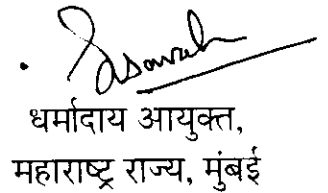 धर्मादाय आयुक्त,
महाराष्ट्र राज्य, मुंबई